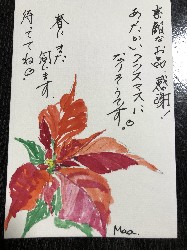 素敵なお品 感謝!
あたたかいクリスマスに
なりそうです。
春に また
伺います
待っててね
Maa.